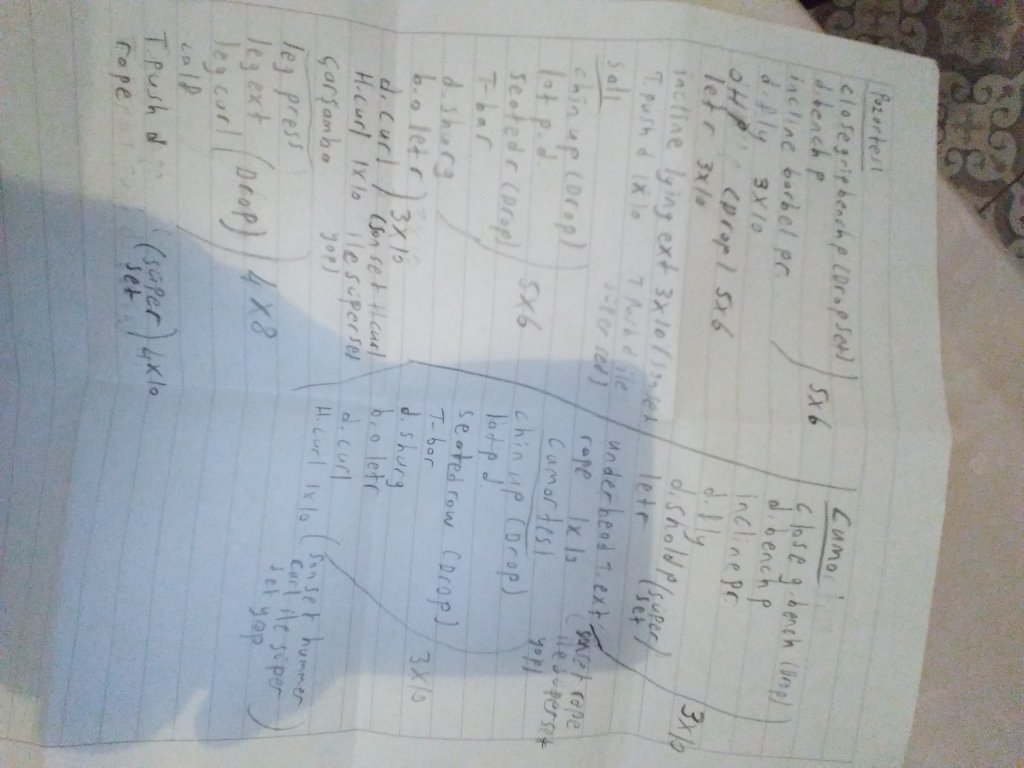 Pazartesi
close gripbench p (Drop set)
d bench p
incline barbel pr.
d. fly 3x10
5x6
OHP (Drop) 5x6
letr 3x10
incline lying ext 3x10 (sonset
T. push d 1x10 T. Push d ile
süperset)
Salı
chinup (Drop)
lat p.d
seatedr (Drop)
T-bar
5x6
d. shurg
b.o letr) 3x10
d. curl (son set H.curl
H. curl 1x10 ile süperset
yap)
Çarşamba
leg press
leg ext
leg curl (Drop) 4x8
calf
T. push d
rope
(süper set) 4x10
Cuma
close g. bench (Drop)
d bench p
incline pr
d. fly
3x10
d. shold p (süper
letr set)
underhead T. ext
rope 1x10 (sonset rope
ile süperset
yap)
cumartesi
chin up (Drop)
lat p d
seatedrow (Drop)
T-bar
3x10
d. shurg
b.o letr
d. curl
H. curl 1x10 (sonset hummer
curl ile süper
set yap)